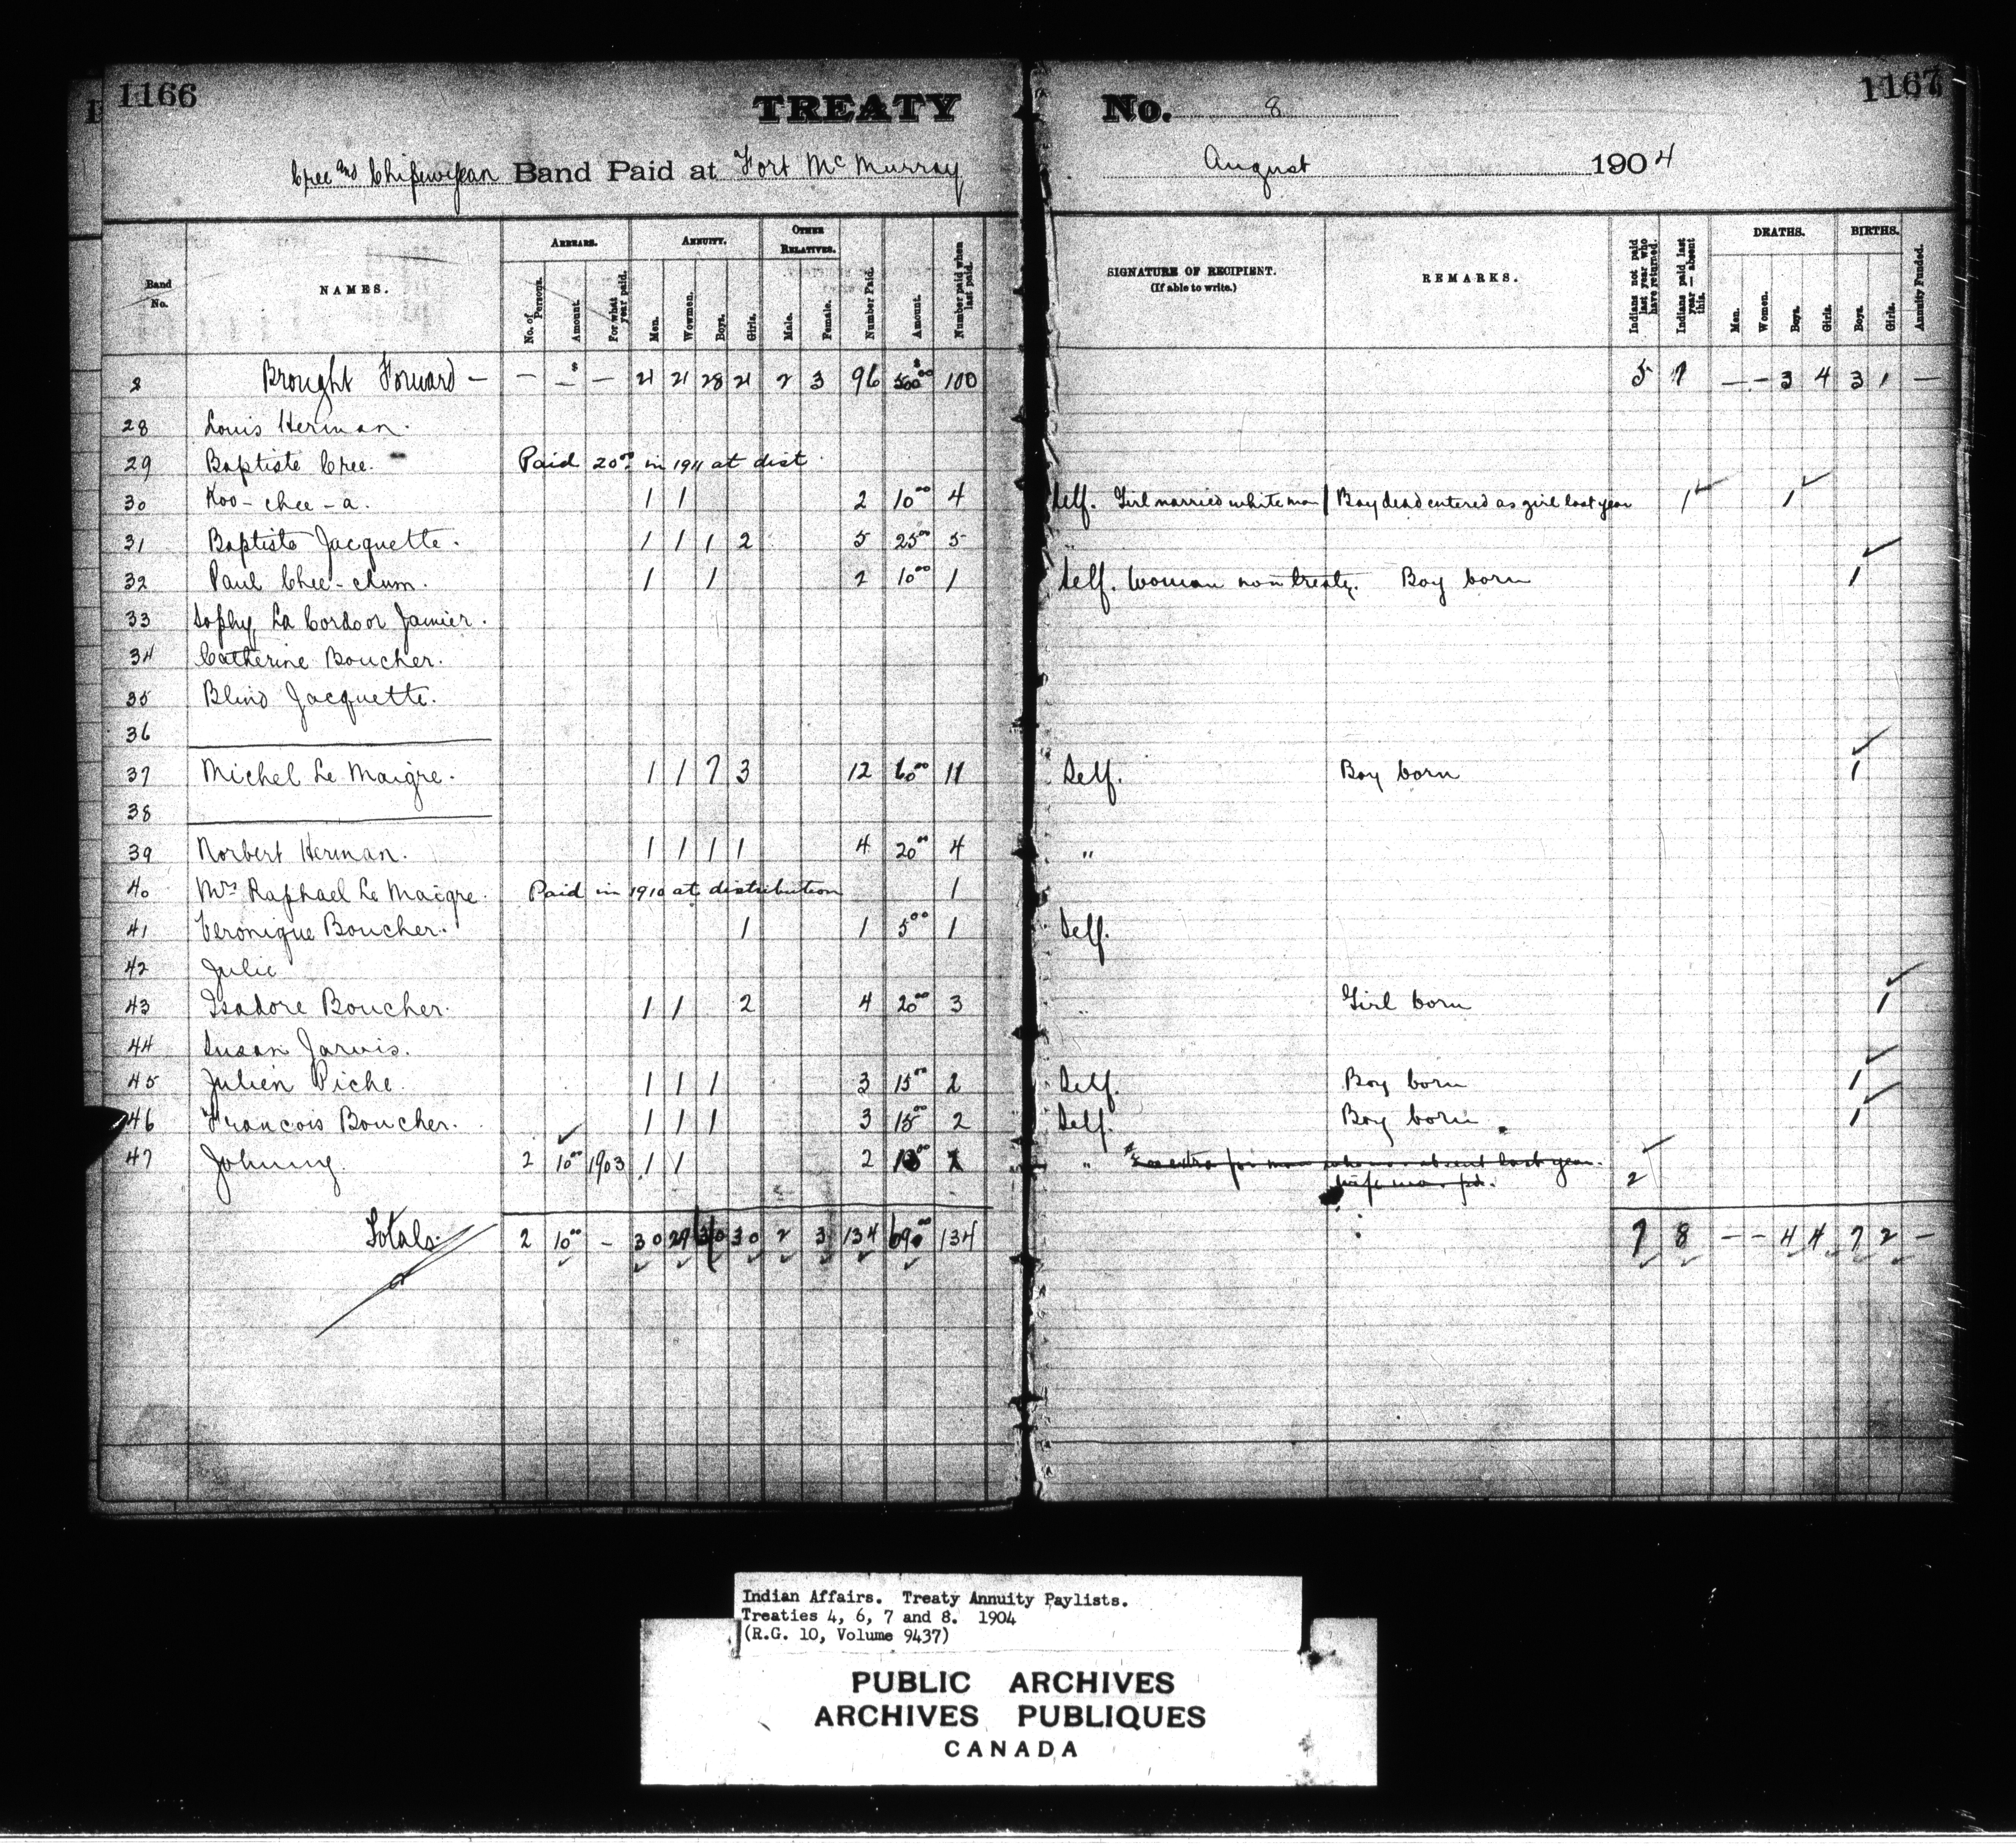 1166
TREATY No. 8
1167
Cree and Chipewyan Band Paid at Fort McMurray August 1904
Band No.
NAMES.
ARREARS.
No. of Persons.
Amount.
For what year paid.
ANNUITY.
Men.
Wowmen.
Boys.
Girls.
OTHER RELATIVES.
Male.
Female.
Number Paid.
Amount.
Number paid when last paid.
SIGNATURE OF RECIPIENT.
(If able to write.)
REMARKS.
Indians not paid last year who have returned.
Indians paid last year — absent this.
DEATHS.
Men.
Women.
Boys.
Girls.
BIRTHS.
Boys.
Girls.
Annuity Funded.
8 Brought Forward — — $ — — 21 21 28 21 2 3 96 $ 500 00 100 5 7 — — 3 4 3 1 —
28 Louis Herman.
29 Baptiste Cree. Paid 20 00 in 1911 at dist
30 Koo-chee-a. 1 1 2 10 00 4 Self. Girl married white man / Boy dead entered as girl last year 1 1
31 Baptiste Jacquette. 1 1 1 2 5 25 00 5 "
32 Paul Chee-chum. 1 1 2 10 00 1 Self. Woman non treaty. Boy born 1
33 Sophy La Cordoor Janvier.
34 Catherine Boucher.
35 Blind Jacquette.
36
37 Michel Le Maigre. 1 1 7 3 12 60 00 11 Self. Boy born 1
38
39 Norbert Herman. 1 1 1 1 4 20 00 4 "
40 Mrs Raphael Le Maigre. Paid in 1910 at distribution 1
41 Veronique Boucher. 1 1 5 00 1 Self.
42 Julie
43 Isadore Boucher. 1 1 2 4 20 00 3 " Girl born 1
44 Susan Jarvis.
45 Julien Piche. 1 1 1 3 15 00 2 Self. Boy born 1
46 Francois Boucher. 1 1 1 3 15 00 2 Self. Boy born 1
47 Johnny. 2 10 00 1903 1 1 2 " extra for man who was absent last year. 2
wife was pd.
Totals. 2 10 00 — 30 29 30 2 3 134 690 00 134 7 8 — — 4 4 7 2 —
Indian Affairs. Treaty Annuity Paylists.
Treaties 4, 6, 7 and 8. 1904
(R.G. 10, Volume 9437)
PUBLIC ARCHIVES
ARCHIVES PUBLIQUES
CANADA